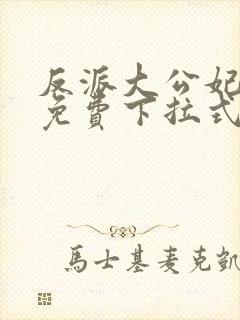 反派大公妃
免費下拉式
馬士基麦克凱